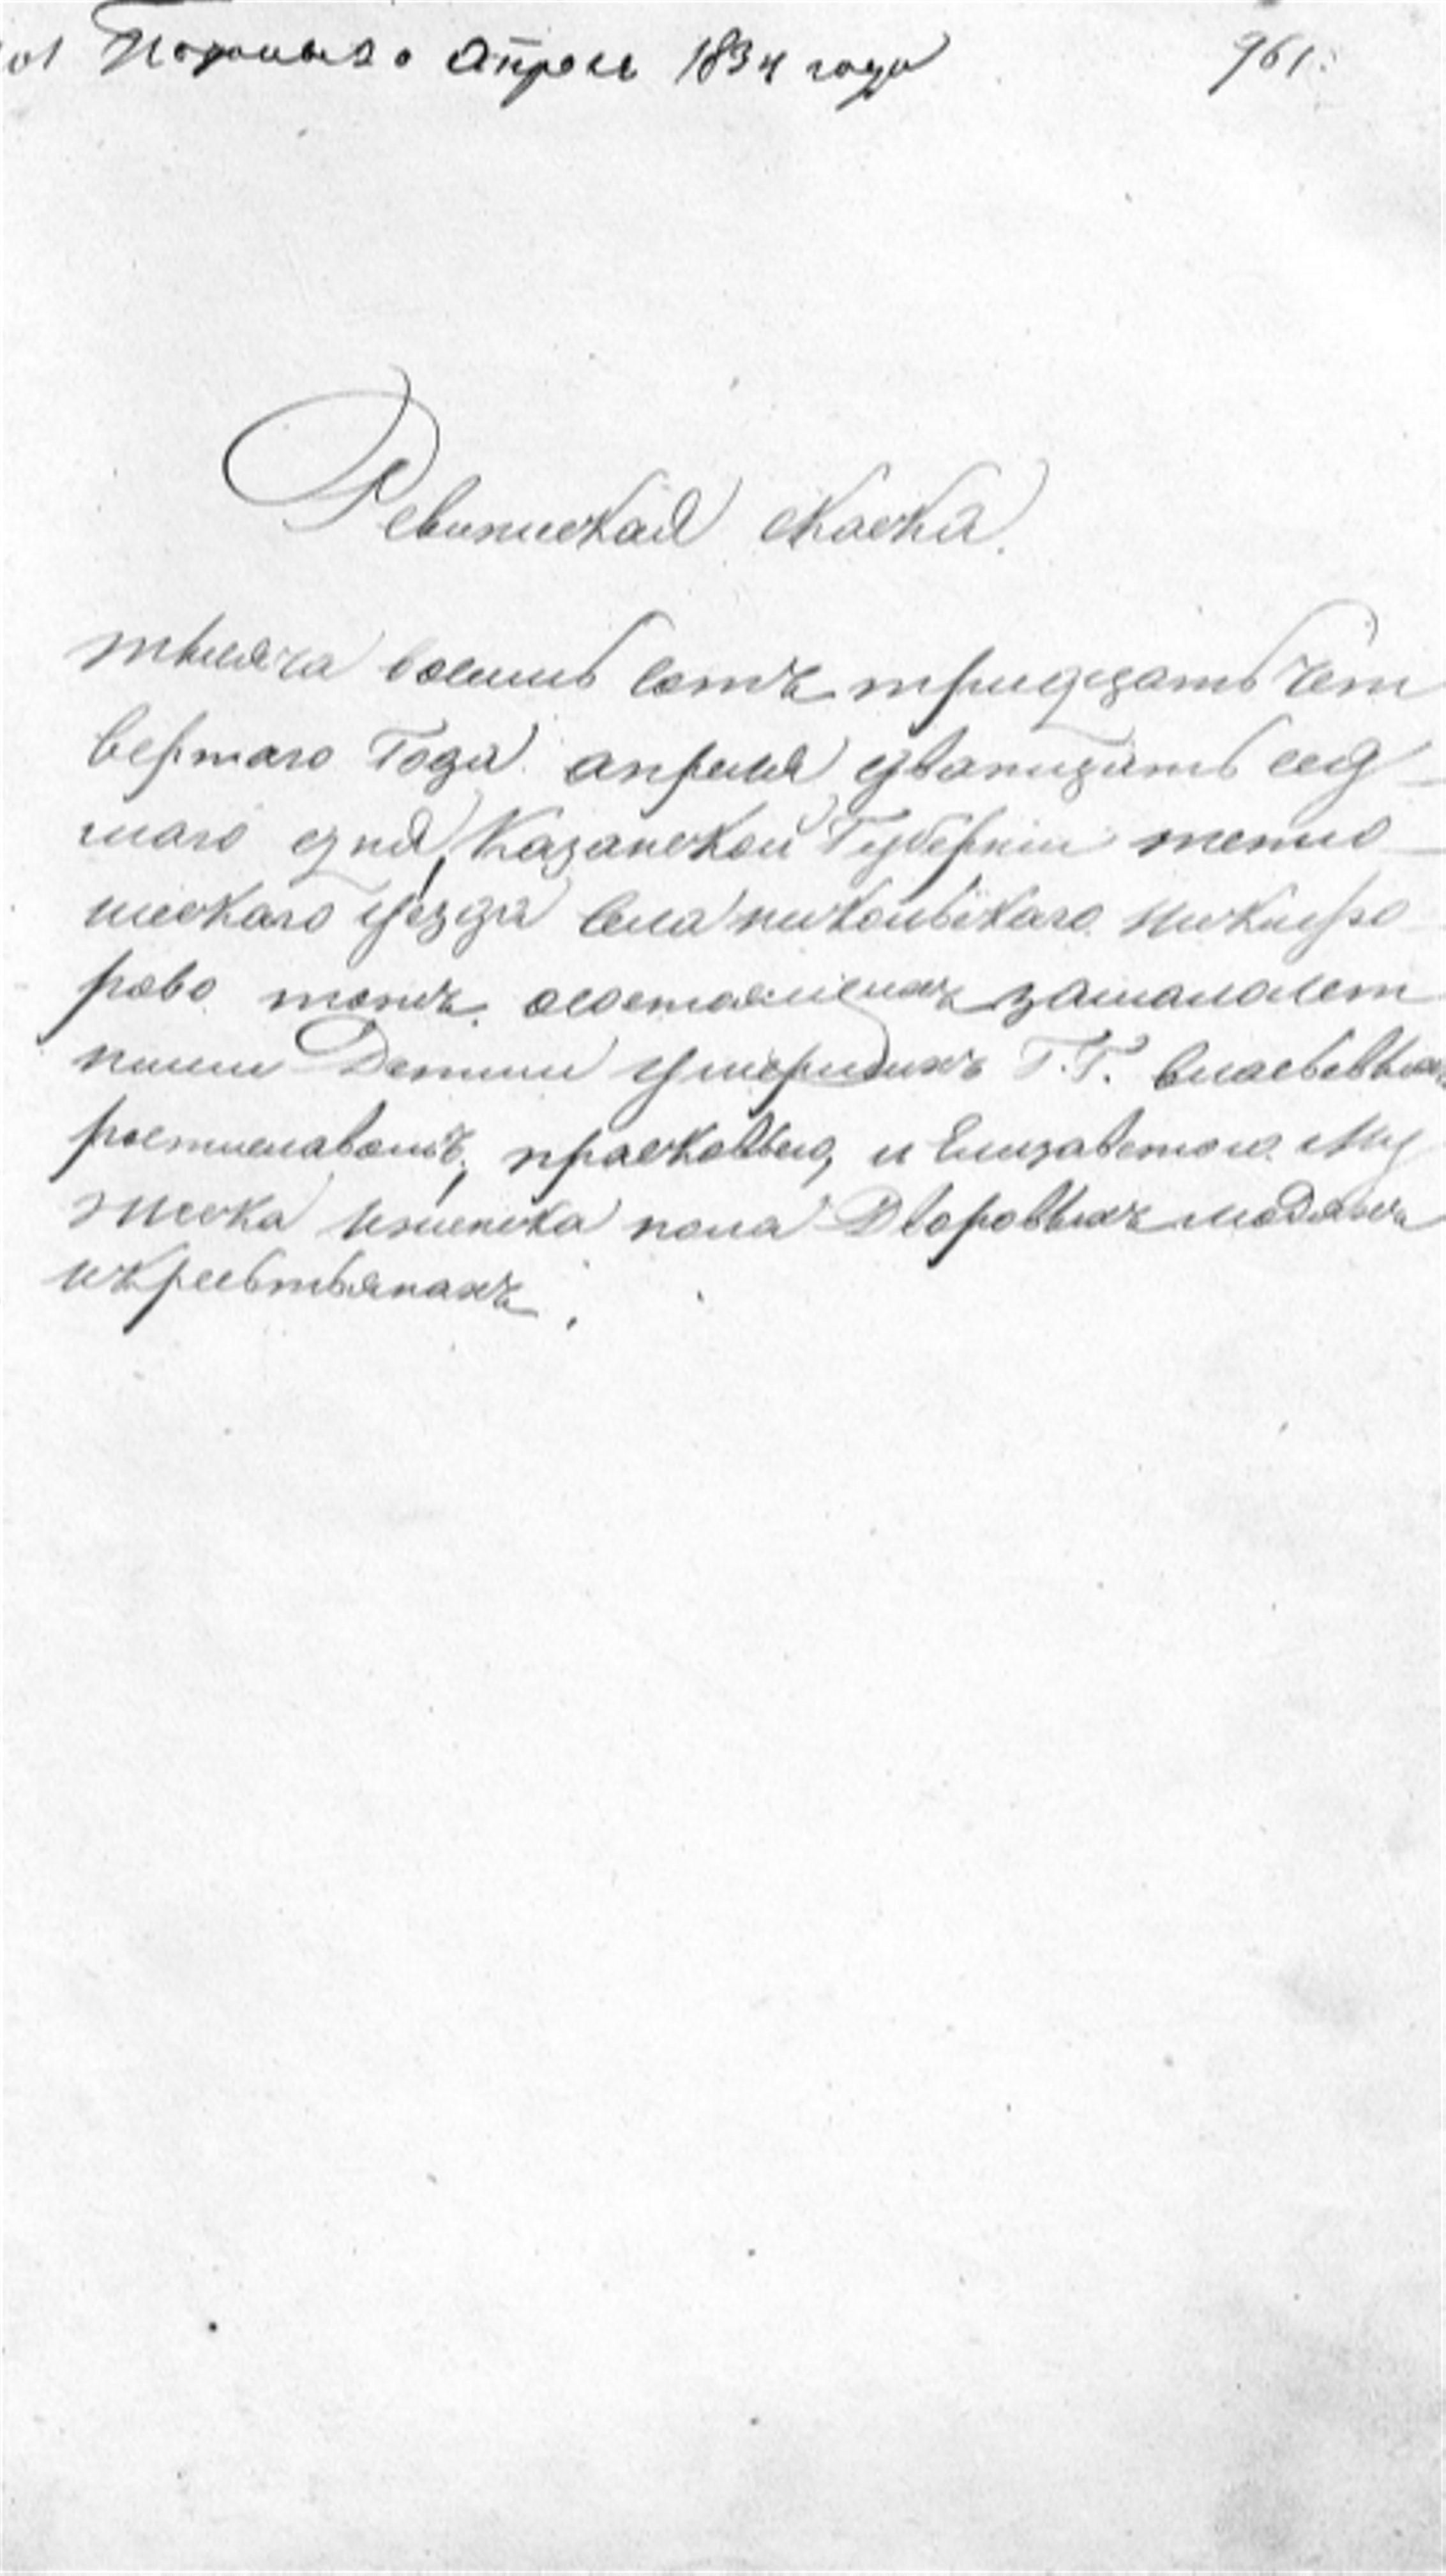 Апрель 1834 года 961.
Ревизская скаска.
тысяча восемь сотъ тридцать чет
вертаго Года апреля дватцать сед
маго дня, Казанской Губернии тетю
шскаго уезда села никольскаго
тожъ, за малолет
ними Детьми умершихъ Г.Г.
ростиславомъ, прасковьею, и Елизаветою Му
жеска и женска пола Дворовыхъ людяхъ
и крестьянахъ.